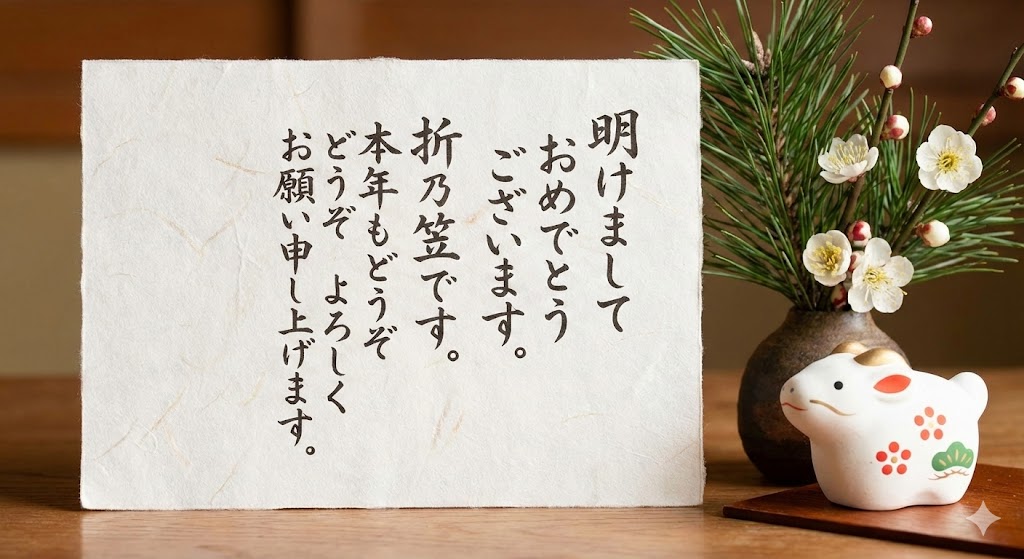 明けまして
おめでとう
ございます。
折乃笠です。
本年もどうぞ
どうぞ よろしく
お願い申し上げます。